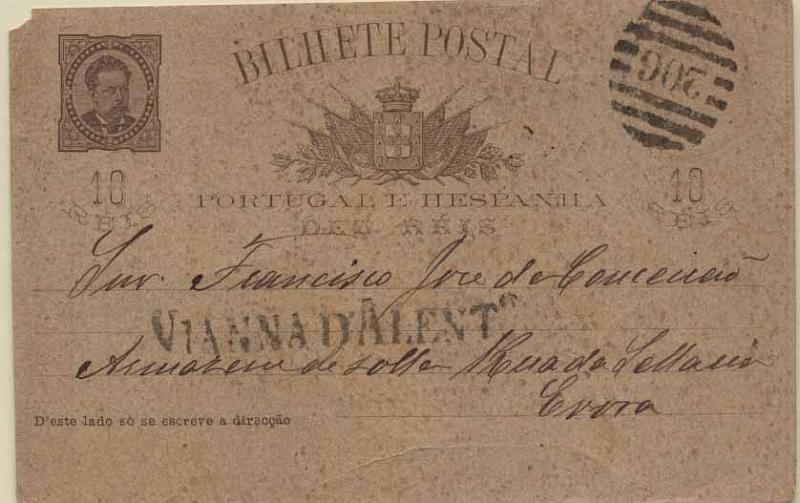 BILHETE POSTAL
206
10 REIS
10 REIS
PORTUGAL E HESPANHA
DEZ RÉIS
Snr. Francisco Jose da Conceicaõ
VIANNA D'ALENTº
Armazem de solla Rua da Sellaria
Evora
D'este lado só se escreve a direcção